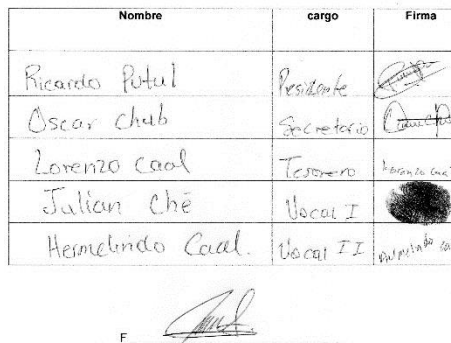 Nombre cargo Firma
Ricardo Putul Presidente
Oscar Chub Secretario
Lorenzo Caal Tesorero Lorenzo Caal
Julian Ché Vocal I
Hermelindo Caal. Vocal II
F